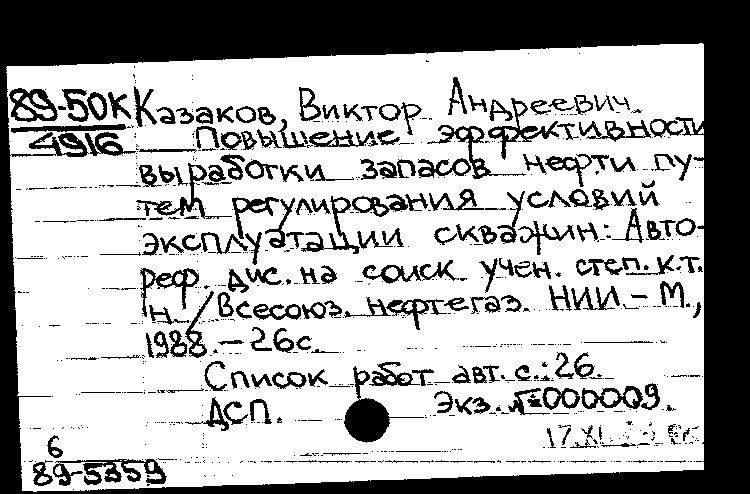 89-50К Казаков, Виктор Андреевич.
4916 Повышение эффективности
выработки запасов нефти пу-
тем регулирования условий
эксплуатации скважин: Авто-
реф. дис. на соиск. учен. степ. к.т.
н. / Всесоюз. нефтегаз. НИИ. - М.,
1988. - 26с.
Список работ авт. с.: 26.
ДСП. Экз. №000009.
17.XI.
6
89-5359